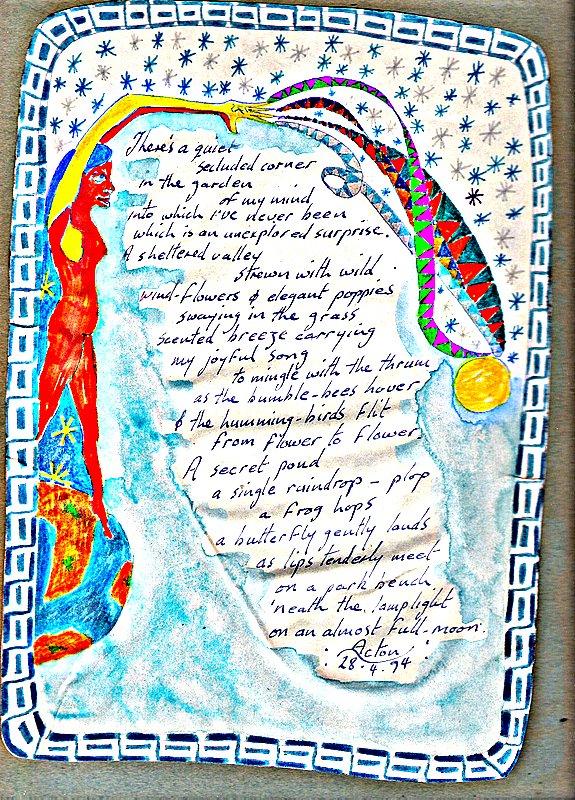 There's a quiet
secluded corner
in the garden
of my mind
into which i've never been
which is an unexplored surprise.
A sheltered valley
strewn with wild
wind-flowers & elegant poppies
swaying in the grass
scented breeze carrying
my joyful song
to mingle with the thrum
as the bumble-bees hover
& the humming-birds flit
from flower to flower.
A secret pond
a single raindrop - plop
a frog hops
a butterfly gently lands
as lips tenderly meet
on a park bench
'neath the lamplight
on an almost full-moon.
Acton
28.4.94